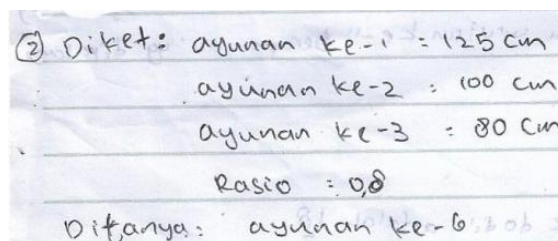 ② Diket : ayunan ke-1 : 125 cm
ayunan ke-2 : 100 cm
ayunan ke-3 : 80 cm
Rasio : 0,8
Ditanya : ayunan ke-6